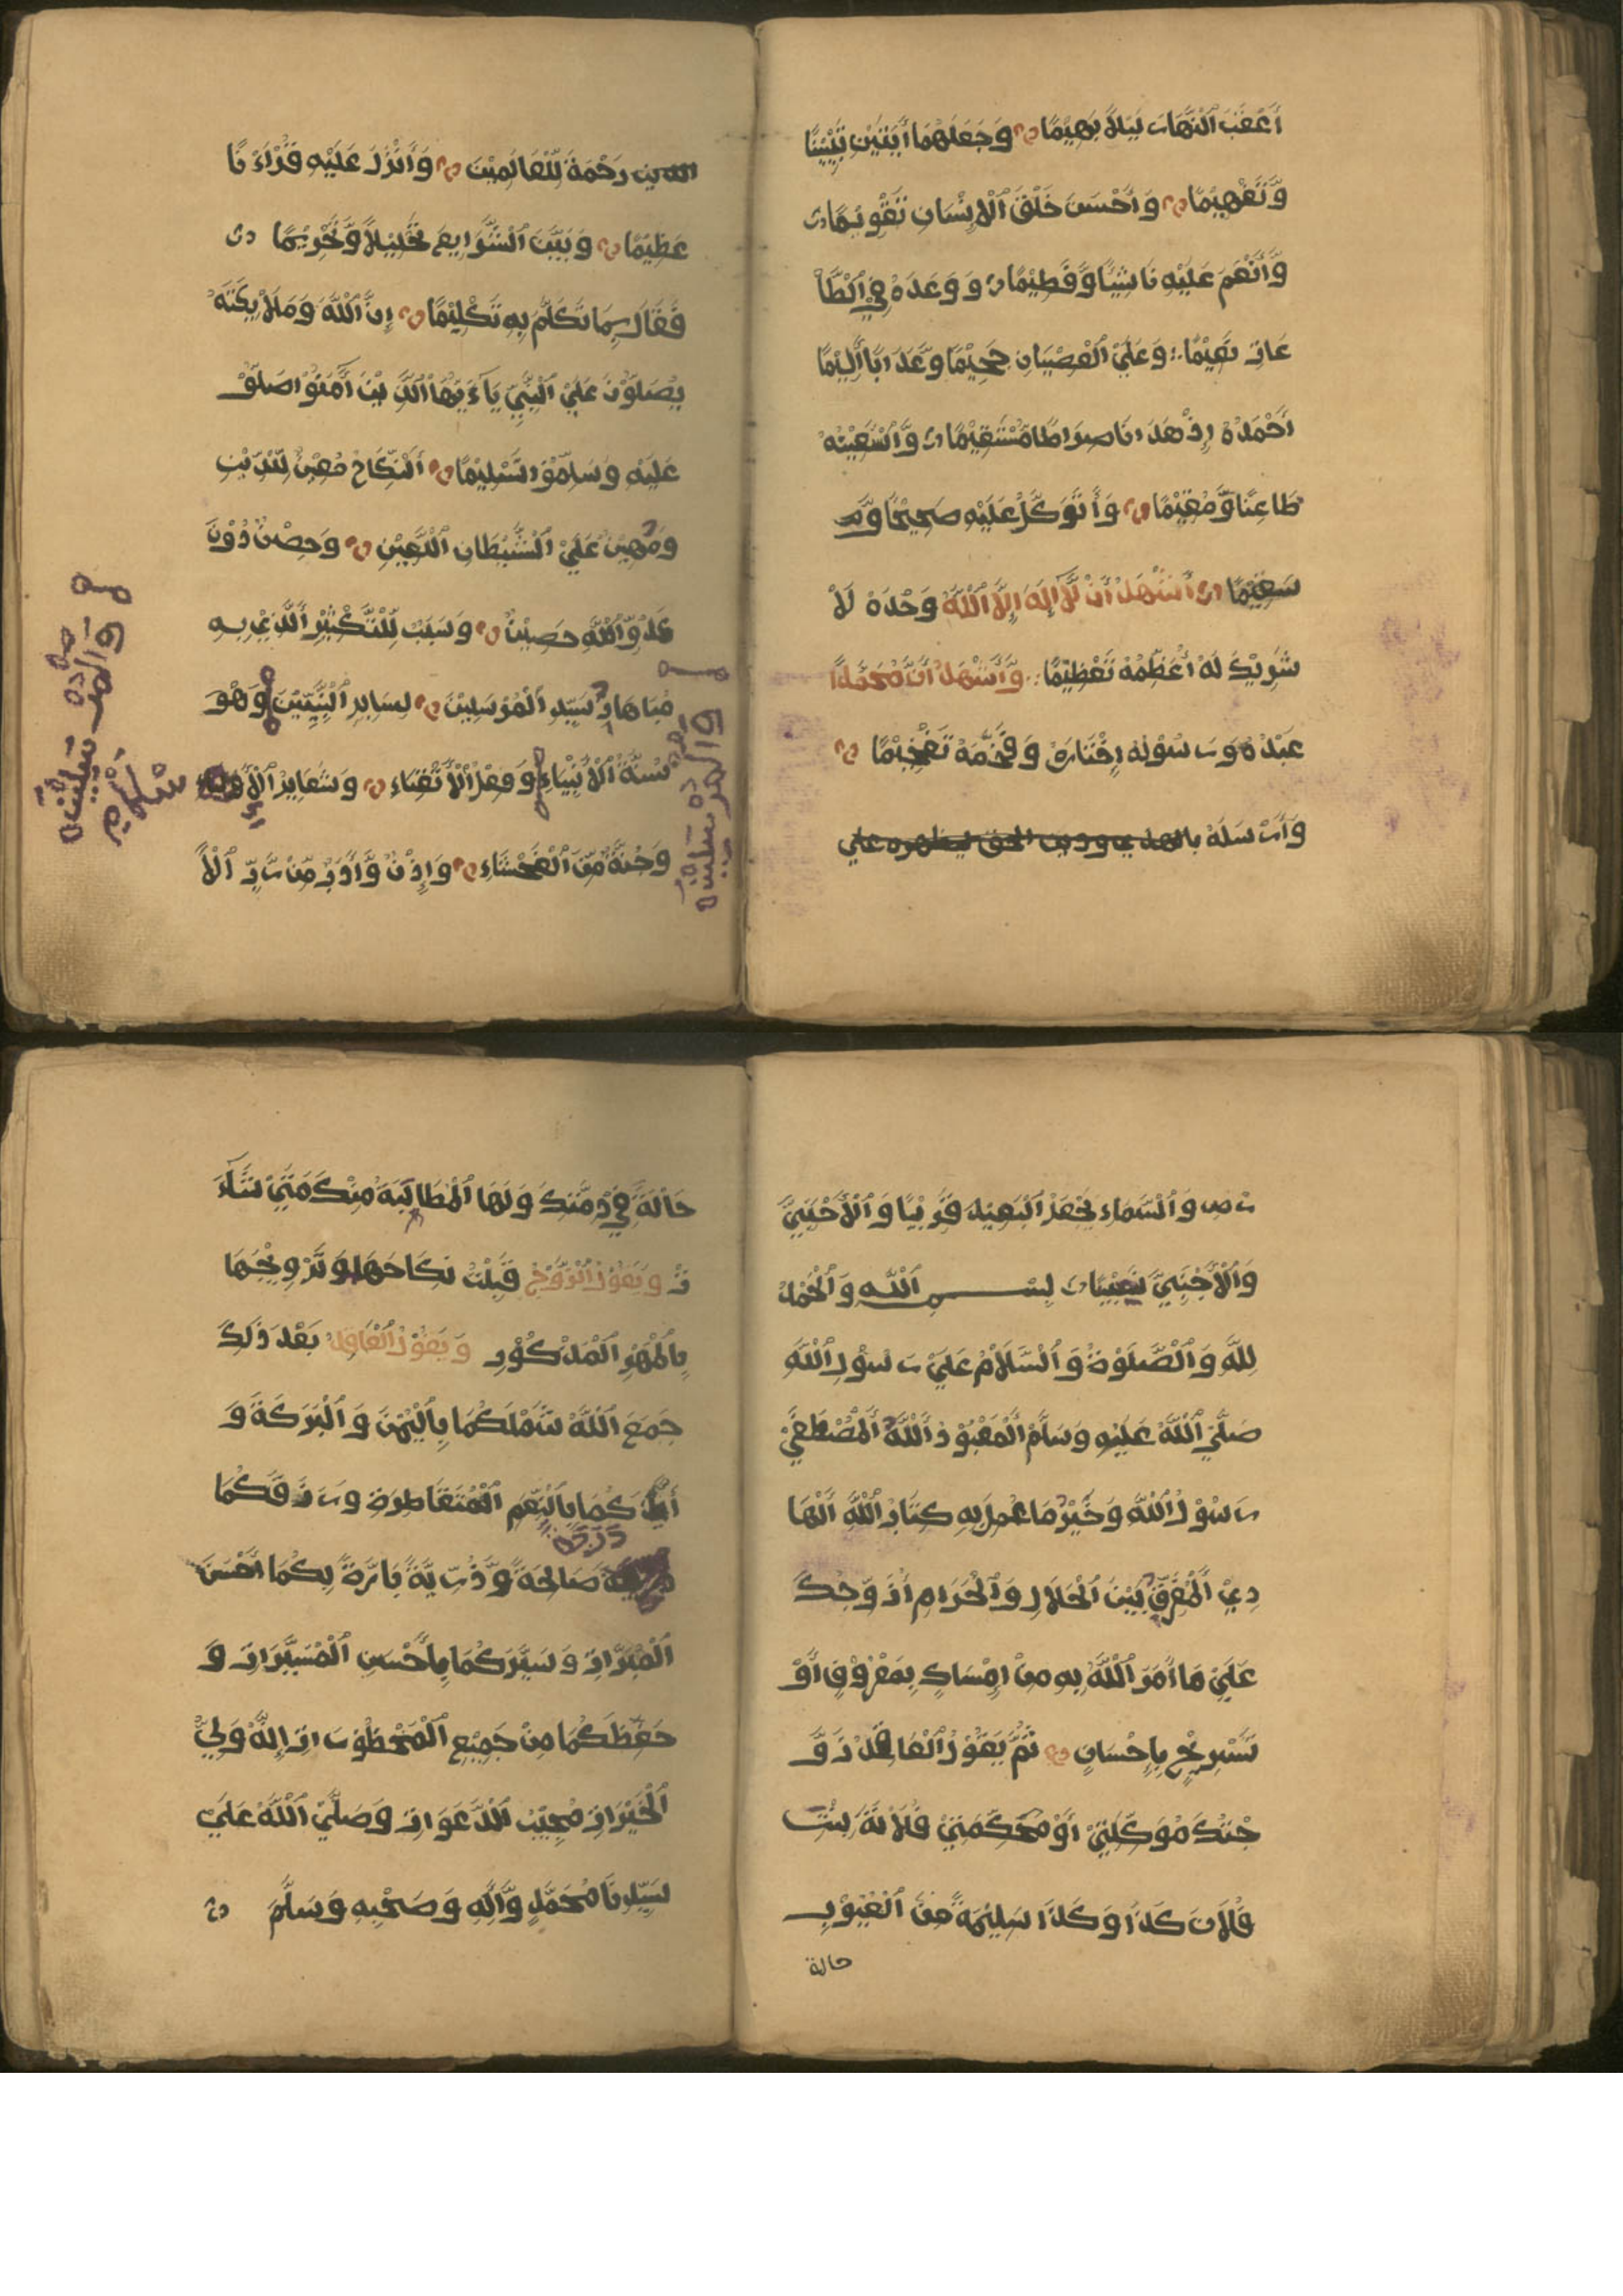 أَعْقَبَ ٱلنَّهَارَ لَيْلاً بَهِيْمًا وَجَعَلَهُمَا أٰيَتَيْنِ تَبْيِيْنًا
وَّتَفْهِيْمًا وَأَحْسَنَ خَلْقَ ٱلْاِنْسَانِ تَقْوِيْمًا
وَّأَنْعَمَ عَلَيْهِ نَاشِئًا وَّفَطِيْمًا وَوَعَدَهُ فِي ٱلْطَّا
عَاتِ نَعِيْمًا وَعَلَيْ ٱلْعِصْيَانِ جَحِيْمًا وَّعَذَابًا أَلِيْمًا
أَحْمَدُهُ إِذْ هَدَانَا صِرَاطًا مُّسْتَقِيْمًا وَّأَسْتَعِيْنُهُ
ظَاعِنًا وَّمُقِيْمًا وَأَتَوَكَّلُ عَلَيْهِ صَحِيْحًا وَّ
سَقِيْمًا أَشْهَدُ أَنْ لَّآ إِلٰهَ إِلَّا ٱللّٰهُ وَحْدَهُ لَا
شَرِيْكَ لَهُ أُعَظِّمُهُ تَعْظِيْمًا وَّأَشْهَدُ أَنَّ مُحَمَّدًا
عَبْدُهُ وَرَسُوْلُهُ إِخْتَارَهُ وَفَخَّمَهُ تَفْخِيْمًا
وَأَرْسَلَهُ بالهدي ودين الحق ليظهره علي
رَحْمَةً لِّلْعَالَمِيْنَ وَأَنْزَلَ عَلَيْهِ قُرْاٰءنًا
عَظِيْمًا وَبَيَّنَ ٱلشَّرَايِعَ تَحْلِيْلاً وَّتَحْرِيْمًا
فَقَالَ بِمَا تَكَلَّمَ بِهِ تَكْلِيْمًا إِنَّ ٱللّٰهَ وَمَلٰٓاىِٕكَتَهُ
يُصَلُّوْنَ عَلَيْ ٱلنَّبِيِّ يَآءَيُّهَا ٱلَّذِيْنَ أٰمَنُوْا صَلُّوْ
عَلَيْهِ وَسَلِّمُوْا تَسْلِيْمًا أَلنِّكَاحُ مُعِيْنٌ لِّلدِّيْنِ
وَمُهِيْنٌ عَلَيْ ٱلشَّيْطَانِ ٱللَّعِيْنِ وَحِصْنٌ دُوْنَ
عَدُوِّ ٱللّٰهِ حَصِيْنٌ وَسَبَبٌ لِّلتَّكْثِيْرِ أَلَّذِيْ بِهِ
مُبَاهَاةُ سَيِّدِ ٱلْمُرْسَلِيْنَ لِسَايِرِ ٱلنَّبِيِّيْنَ وَهُوَ
سُنَّةُ ٱلْأَنْبِيَاءِ وَفِعْلُ ٱلْأَتْقِيَاءِ وَشَعَايِرُ
وَجُنَّةٌ مِّنَ ٱلْفَحْشَاءِ وَإِذْنٌ وَّأَدَبٌ مِّنْ رَّبِّ ٱلْأَ
رْضِ وَٱلسَّمَاءِ يَجْعَلُ ٱلْبَعِيْدَ قَرِيْبًا وَٱلْأَجْنَبِيَّ
وَٱلْأَجْنَبِيَّ نَسِيْبًا بِسْمِ ٱللّٰهِ وَٱلْحَمْدُ
لِلّٰهِ وَٱلصَّلَوٰةُ وَٱلسَّلَامُ عَلَيْ رَسُوْلِ ٱللّٰهِ
صَلَّيْ ٱللّٰهُ عَلَيْهِ وَسَلَّمَ أَلْمَعْبُوْدُ أَللّٰهُ أَلْمُصْطَفَيْ
رَسُوْلُ ٱللّٰهِ وَخَيْرُ مَا عُمِلَ بِهِ كِتَابُ ٱللّٰهِ أَلْهَا
دِيْ أَلْمُفَرِّقُ بَيْنَ ٱلْحَلَالِ وَٱلْحَرَامِ أُزَوِّجُكَ
عَلَيْ مَا أَمَرَ ٱللّٰهُ بِهِ مِنْ اِمْسَاكٍ بِمَعْرُوْفٍ أَوْ
تَسْرِيْحٍ بِاِحْسَانٍ ثُمَّ يَقُوْلُ ٱلْعَاقِدُ زَوَّ
جْتُكَ مُوَكِّلَتِيْ أَوْ مُحَكِّمَتِيْ فُلَانَةَ بِنْتَ
فُلَانٍ كَذَا وَكَذَا سَلِيْمَةً مِّنَ ٱلْعُيُوْبِ
حالة
حَآلَّةً فِيْ ذِمَّتِكَ وَلَهَا ٱلْمُطَالَبَةُ مِنْكَ مَتَيْ شَآءَ
تْ وَيَقُوْلُ ٱلزَّوْجُ قَبِلْتُ نِكَاحَهَا وَتَزْوِيْجَهَا
بِالْمَهْرِ ٱلْمَذْكُوْرِ وَيَقُوْلُ ٱلْعَاقِدُ بَعْدَ ذٰلِكَ
جَمَعَ ٱللّٰهُ شَمْلَكُمَا بِٱلْيُمْنِ وَٱلْبَرَكَةِ وَ
أَيَّدَكُمَا بِٱلنِّعَمِ ٱلْمُتَقَاطِرَةِ وَرَزَقَكُمَا
صَالِحَةً وَّذُرِّيَّةً بَارَّةً بِكُمَا أَحْسَنَ
ٱلْمَبَرَّاتِ وَسَيَّرَكُمَا بِأَحْسَنِ ٱلْمَسِيْرَاتِ وَ
حَفِظَكُمَا مِنْ جَمِيْعِ ٱلْمَحْظُوْرَاتِ إِنَّهُ وَلِيُّ
ٱلْخَيْرَاتِ مُجِيْبُ ٱلدَّعَوَاتِ وَصَلَّيْ ٱللّٰهُ عَلَيْ
سَيِّدِنَا مُحَمَّدٍ وَّأٰلِهِ وَصَحْبِهِ وَسَلَّمَ